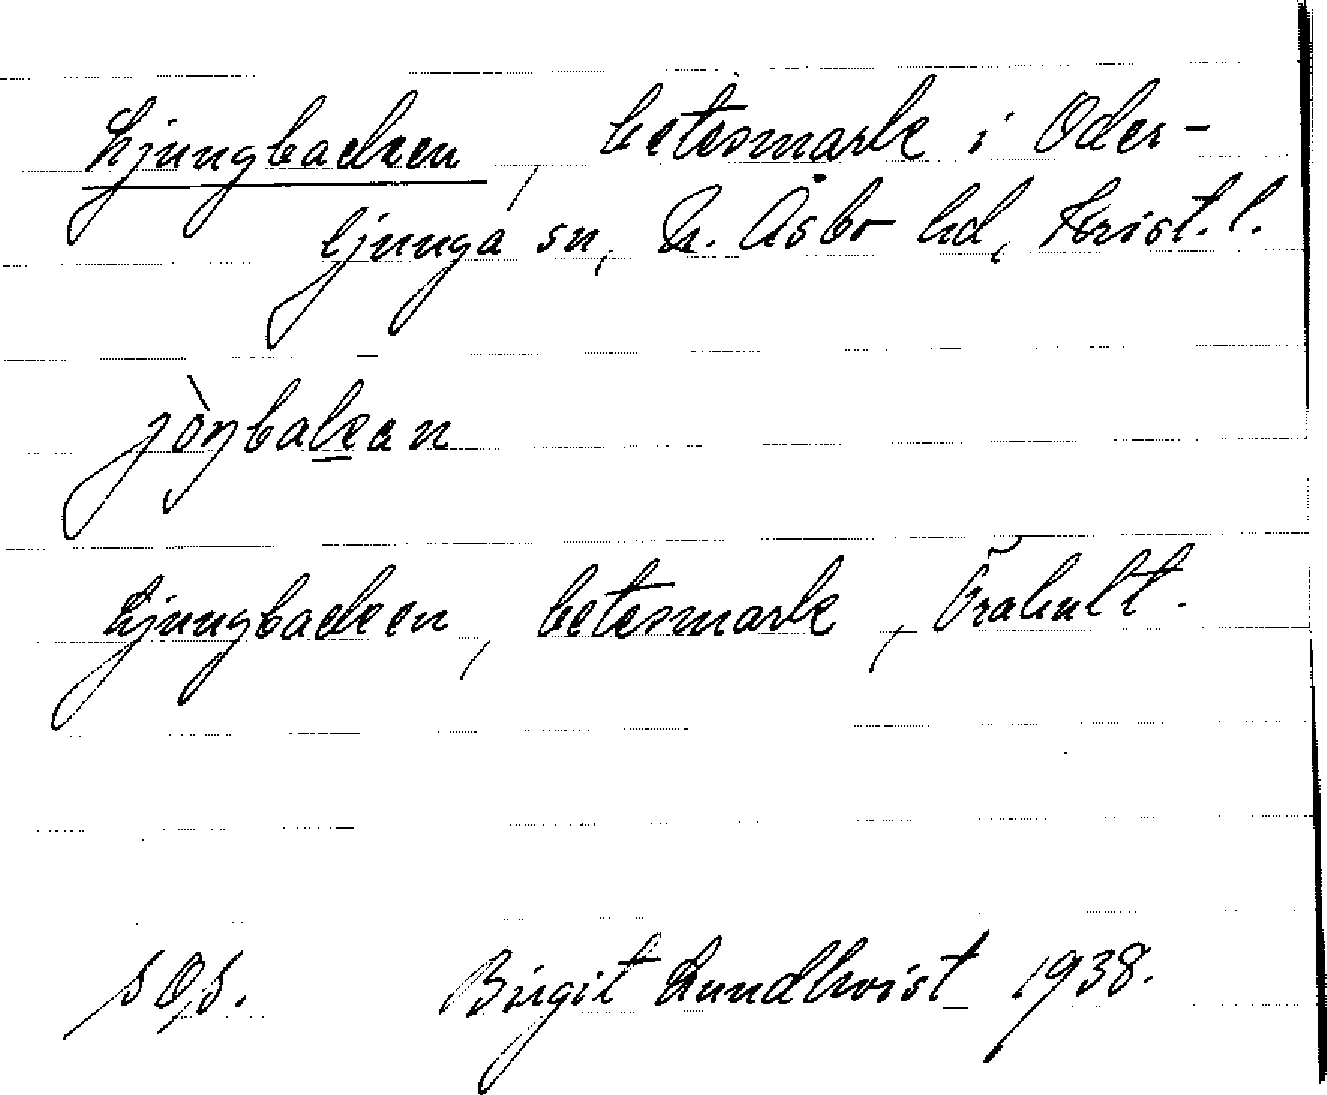 Ljungbacken, betesmark i Oder-
ljunga sn, N. Åsbo hd, Krist. l.
jòŋbakan
Ljungbacken, betesmark, Örahult.
Birgit Lundkvist 1938.